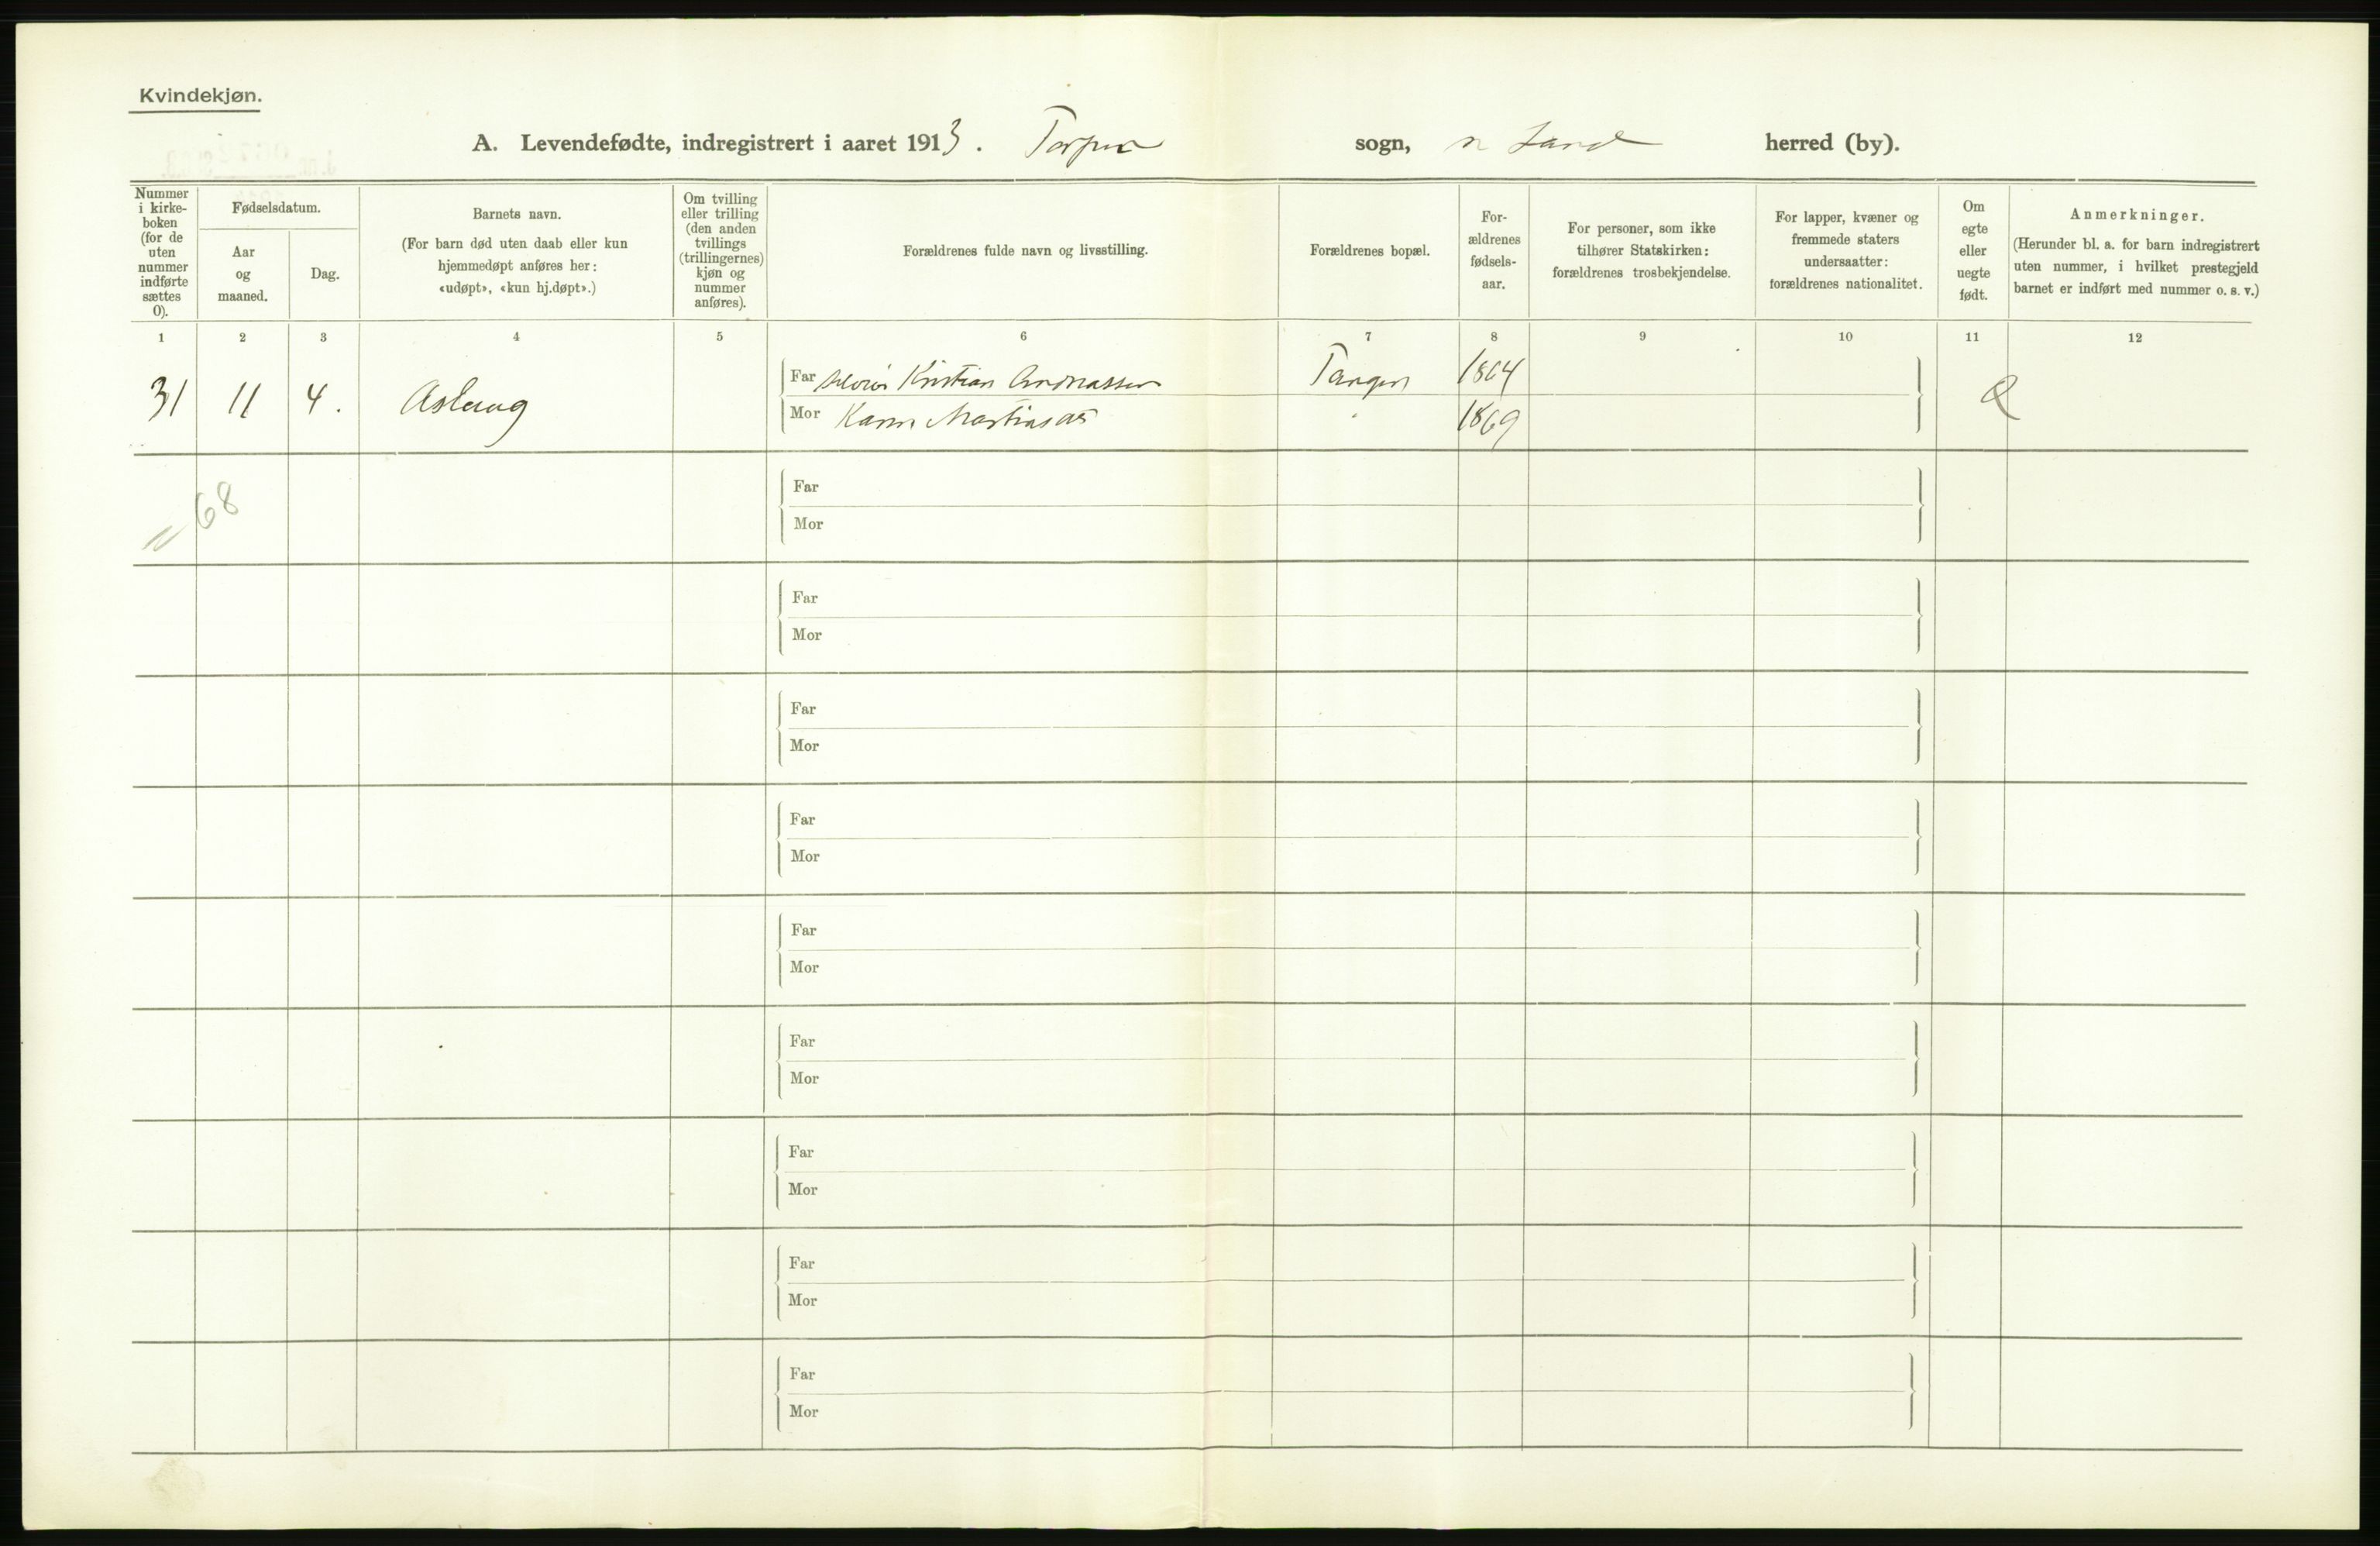 Kvindekjøn.
A. Levendefødte, indregistrert i aaret 1913. Torpen sogn, n Land herred (by).
Nummer i kirke-boken (for de uten nummer indførte sættes 0).
Fødselsdatum.
Aar og maaned.
Dag.
Barnets navn.
(For barn død uten daab eller kun
hjemmedøpt anføres her:
«udøpt», «kun hj.døpt».)
Om tvilling
eller trilling
(den anden
tvillings
(trillingernes)
kjøn og
nummer
anføres).
Forældrenes fulde navn og livsstilling.
Forældrenes bopæl.
For-
ældrenes
fødsels-
aar.
For personer, som ikke
tilhører Statskirken:
forældrenes trosbekjendelse.
For lapper, kvæner og
fremmede staters
undersaatter:
forældrenes nationalitet.
Om
egte
eller
uegte
født.
Anmerkninger.
(Herunder bl. a. for barn indregistrert
uten nummer, i hvilket prestegjeld
barnet er indført med nummer o. s. v.)
1 2 3 4 5 6 7 8 9 10 11 12
31 11 4. Aslaug Far Kristian Andreassen Tangen 1864
Mor Karen Mathiasdtr 1869
68
Far
Mor
Far
Mor
Far
Mor
Far
Mor
Far
Mor
Far
Mor
Far
Mor
Far
Mor
Far
Mor